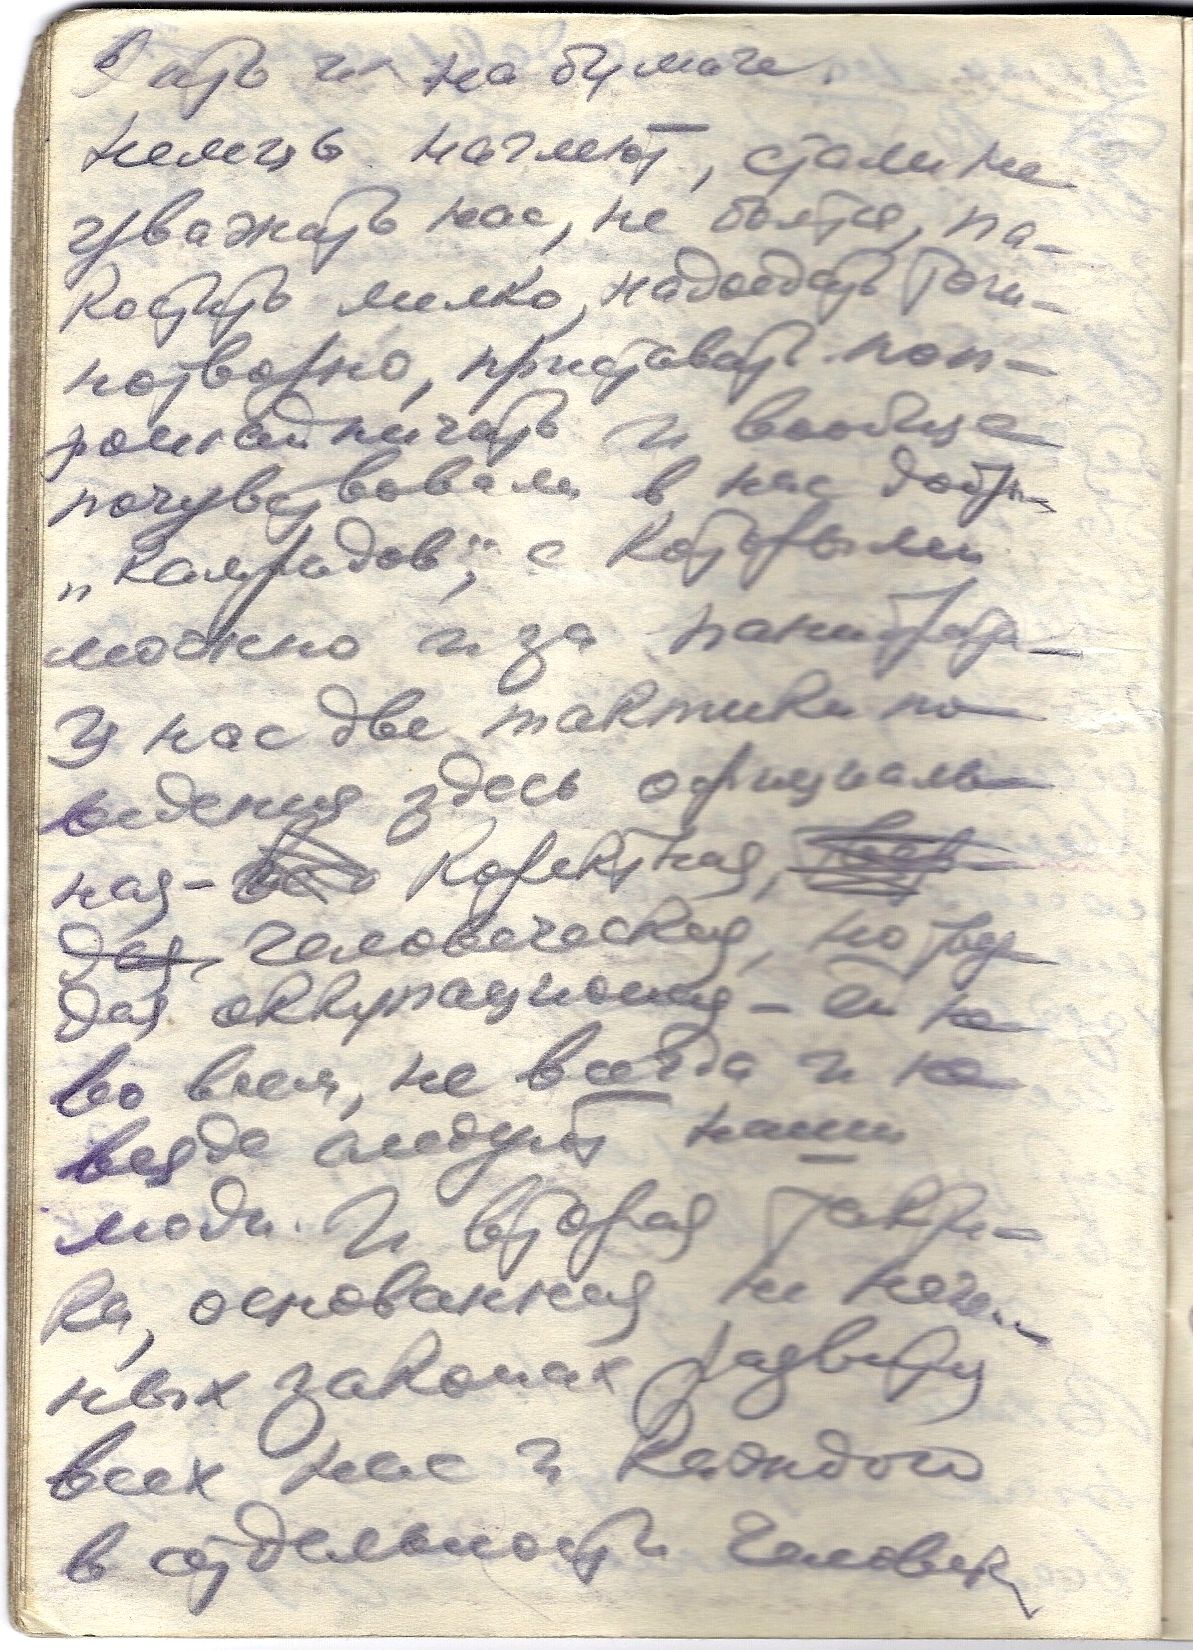 их на бумаге.
немцы наглеют, стали не
уважать нас, не боятся, па-
костить мелко, надоедать
приставать поп-
рошайничать и вообще
почувствовали в нас добрых
„камрадов", с которыми
можно и за панибрата
У нас две тактики по-
ведения здесь официаль-
ная - коректная,
человеческая, но твер
дая оккупационная - ей не
во всем, не всегда и не
везде следуют наши
люди. И вторая такти-
ка, основанная на
ных законах разведки
всех нас и каждого
в отдельности человека